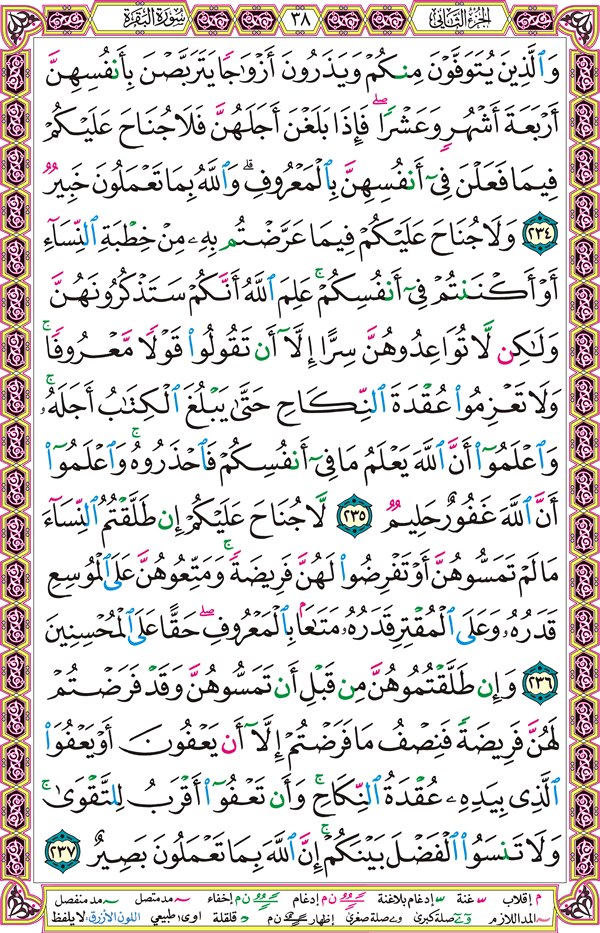 الجزء الثاني
٣٨
سورة البقرة
وَٱلَّذِينَ يُتَوَفَّوْنَ مِنكُمْ وَيَذَرُونَ أَزْوَٰجًا يَتَرَبَّصْنَ بِأَنفُسِهِنَّ
أَرْبَعَةَ أَشْهُرٍ وَعَشْرًا ۖ فَإِذَا بَلَغْنَ أَجَلَهُنَّ فَلَا جُنَاحَ عَلَيْكُمْ
فِيمَا فَعَلْنَ فِىٓ أَنفُسِهِنَّ بِٱلْمَعْرُوفِ ۗ وَٱللَّهُ بِمَا تَعْمَلُونَ خَبِيرٌ
٢٣٤ وَلَا جُنَاحَ عَلَيْكُمْ فِيمَا عَرَّضْتُم بِهِۦ مِنْ خِطْبَةِ ٱلنِّسَآءِ
أَوْ أَكْنَنتُمْ فِىٓ أَنفُسِكُمْ ۚ عَلِمَ ٱللَّهُ أَنَّكُمْ سَتَذْكُرُونَهُنَّ
وَلَـٰكِن لَّا تُوَاعِدُوهُنَّ سِرًّا إِلَّآ أَن تَقُولُوا۟ قَوْلًا مَّعْرُوفًا ۚ
وَلَا تَعْزِمُوا۟ عُقْدَةَ ٱلنِّكَاحِ حَتَّىٰ يَبْلُغَ ٱلْكِتَـٰبُ أَجَلَهُۥ ۚ
وَٱعْلَمُوٓا۟ أَنَّ ٱللَّهَ يَعْلَمُ مَا فِىٓ أَنفُسِكُمْ فَٱحْذَرُوهُ ۚ وَٱعْلَمُوٓا۟
أَنَّ ٱللَّهَ غَفُورٌ حَلِيمٌ ٢٣٥ لَّا جُنَاحَ عَلَيْكُمْ إِن طَلَّقْتُمُ ٱلنِّسَآءَ
مَا لَمْ تَمَسُّوهُنَّ أَوْ تَفْرِضُوا۟ لَهُنَّ فَرِيضَةً ۚ وَمَتِّعُوهُنَّ عَلَى ٱلْمُوسِعِ
قَدَرُهُۥ وَعَلَى ٱلْمُقْتِرِ قَدَرُهُۥ مَتَـٰعًۢا بِٱلْمَعْرُوفِ ۖ حَقًّا عَلَى ٱلْمُحْسِنِينَ
٢٣٦ وَإِن طَلَّقْتُمُوهُنَّ مِن قَبْلِ أَن تَمَسُّوهُنَّ وَقَدْ فَرَضْتُمْ
لَهُنَّ فَرِيضَةً فَنِصْفُ مَا فَرَضْتُمْ إِلَّآ أَن يَعْفُونَ أَوْ يَعْفُوَا۟
ٱلَّذِى بِيَدِهِۦ عُقْدَةُ ٱلنِّكَاحِ ۚ وَأَن تَعْفُوٓا۟ أَقْرَبُ لِلتَّقْوَىٰ ۚ
وَلَا تَنسَوُا۟ ٱلْفَضْلَ بَيْنَكُمْ ۚ إِنَّ ٱللَّهَ بِمَا تَعْمَلُونَ بَصِيرٌ ٢٣٧
م إقلاب غنة إدغام بلاغنة ن م إدغام ن م إخفاء مد متصل مد منفصل
المد اللازم صلة كبرى صلة صغرى إظهار ن م قلقلة اوى طبيعي اللون الأزرق: لا يلفظ